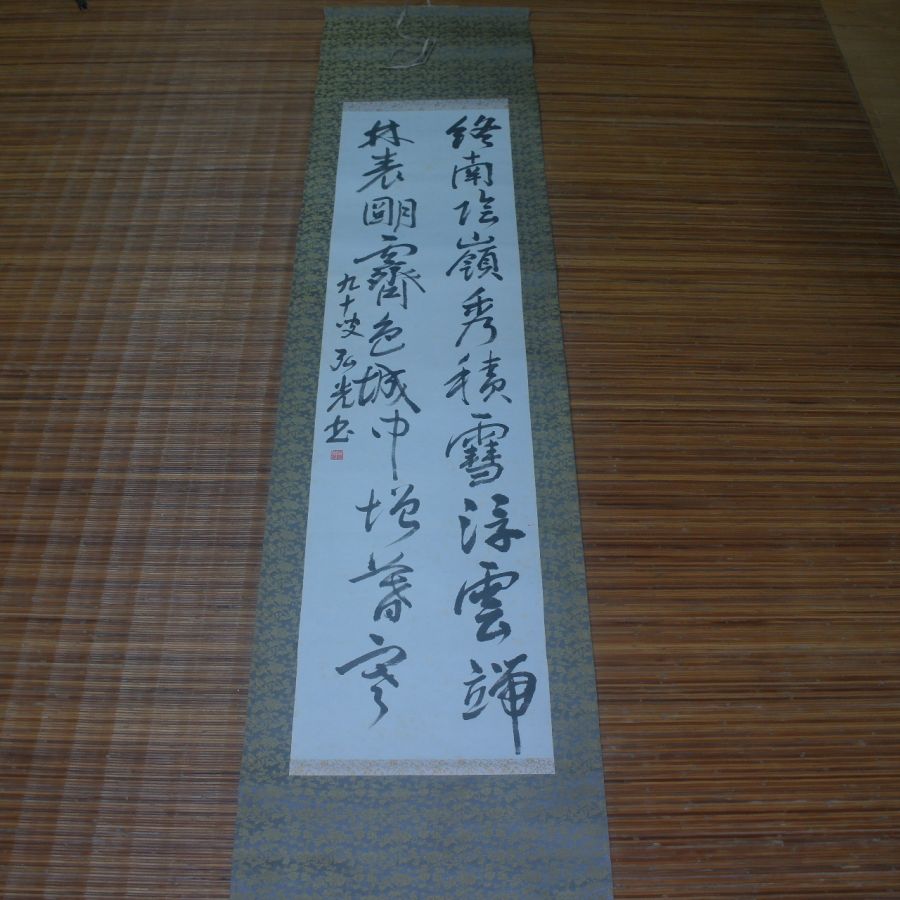 終南陰嶺秀積雪浮雲端
林表明霽色城中增暮寒
九十叟 弘光书